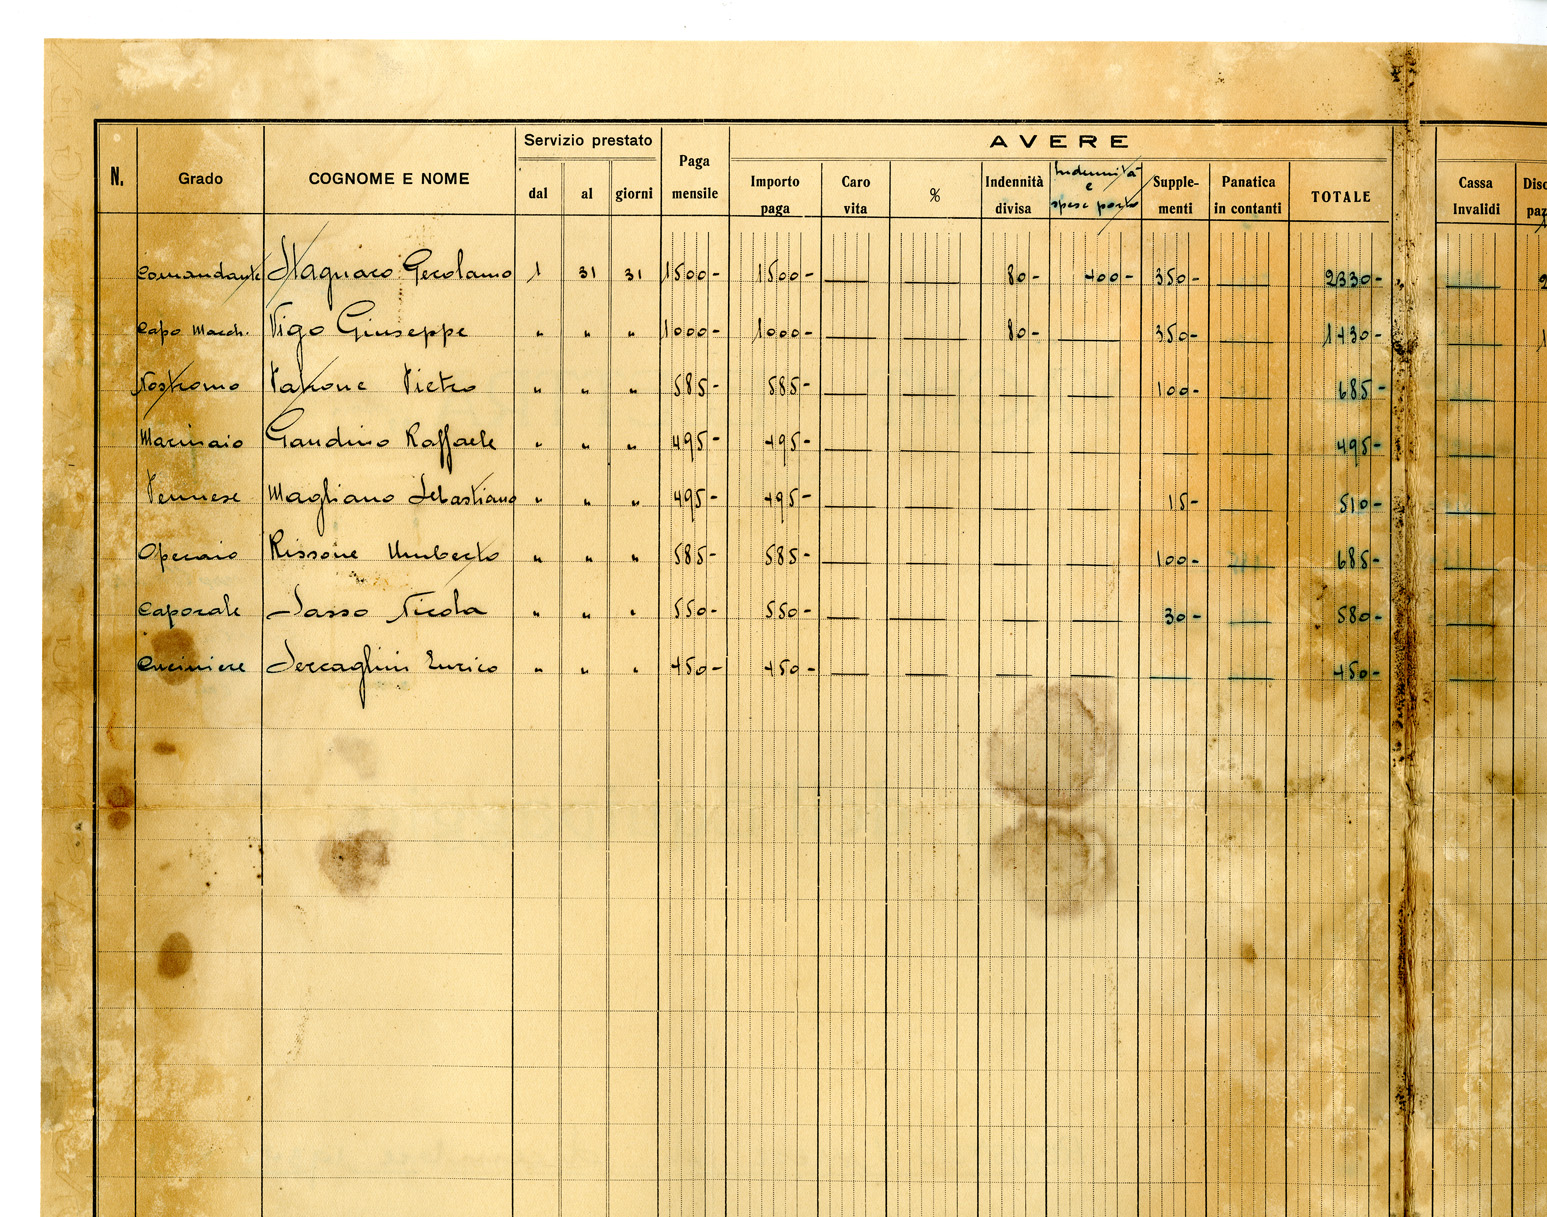 AVERE
Servizio prestato
N. Grado COGNOME E NOME dal al giorni Paga mensile Importo paga Caro vita % Indennità divisa Indennità e spese porto Supplementi Panatica in contanti TOTALE Cassa Invalidi
Comandante Stagnaro Gerolamo 1 31 31 1500- 1500- — — 80- 400- 350- — 2330- —
Capo Macch. Vigo Giuseppe " " " 1000- 1000- — — 80- — 350- — 1430- —
Nostromo Patrone Pietro " " " 585- 585- — — — — 100- — 685- —
Marinaio Gaudino Raffaele " " " 495- 495- — — — — — — 495- —
Pennese Magliano Sebastiano " " " 495- 495- — — — — 15- — 510- —
Operaio Rissone Umberto " " " 585- 585- — — — — 100- — 685- —
Caporale Sasso Nicola " " " 550- 550- — — — — 30- — 580- —
Cuciniere Serraglini Enrico " " " 450- 450- — — — — — — 450- —